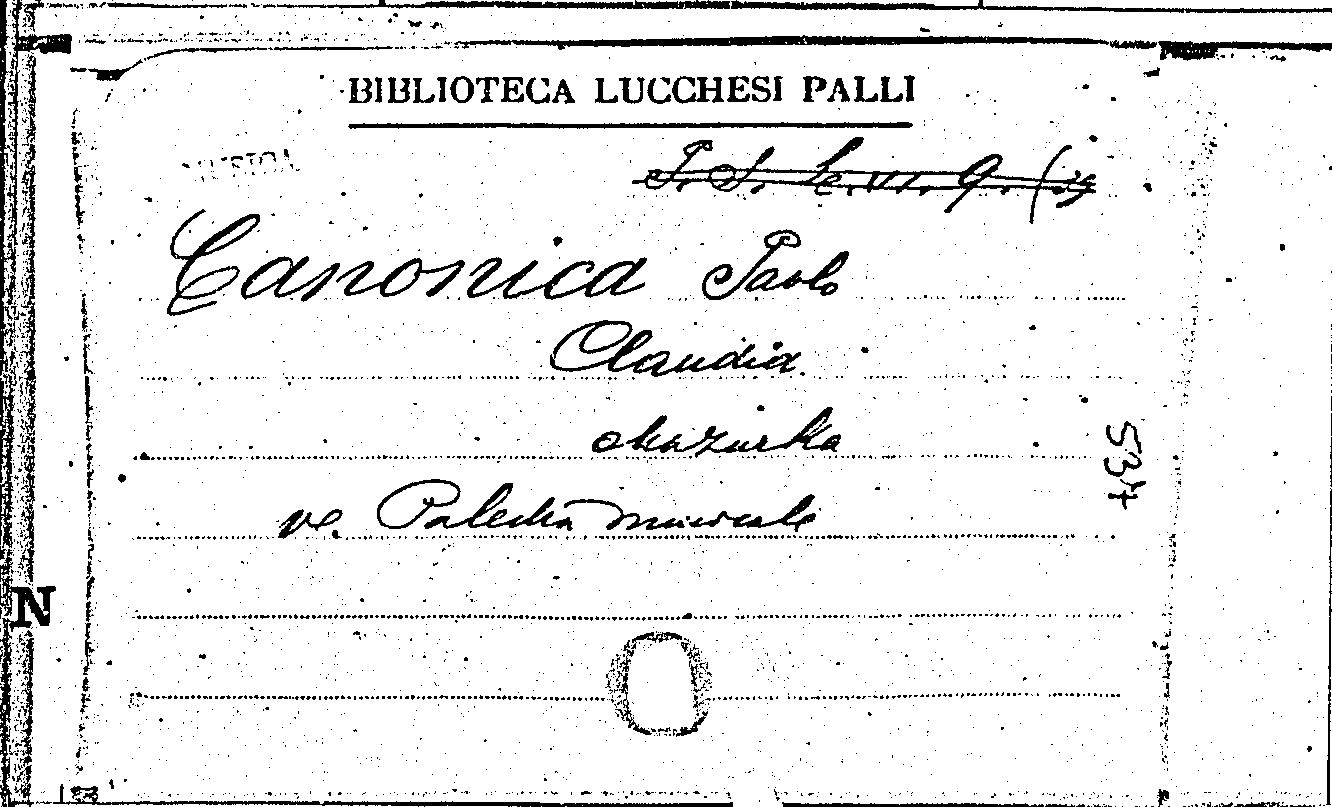 BIBLIOTECA LUCCHESI PALLI
MUSICA
Canonica Paolo
Claudia
Mazurka
ve. Palestra musicale
537
N